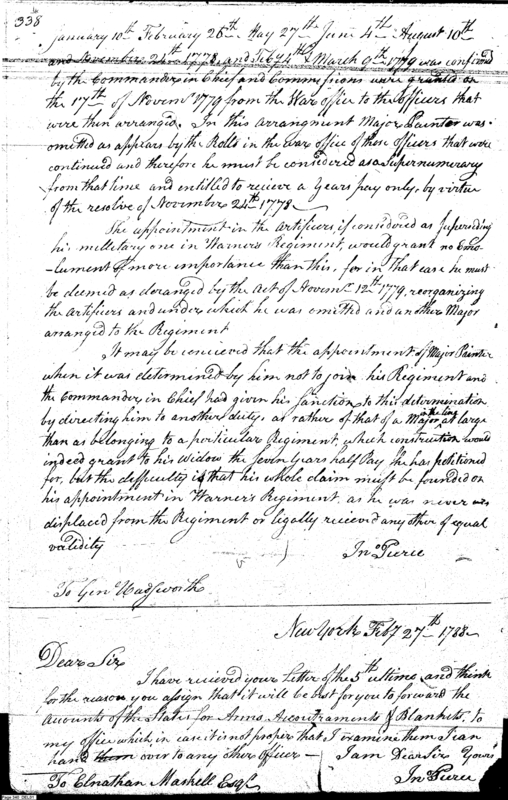 338
January 10th February 26th May 27th June 4th August 10th
and November 24th 1778, and Feby 4th & March 9th 1779 was confirmed
by the Commander in Chief and Commissions were granted on
the 17th of Novemr 1779 from the War office to the officers that
were then arranged. In this arrangment Major Painter was
omitted as appears by the Rolls in the war office of those officers that were
continued and therefore he must be considered as a Supernumerary
from that time and entitled to recieve a Years pay only, by virtue
of the resolve of November 24th 1778
The appointment in the artificers, if considered as Superseding
his millitary one in Warners Regiment, would grant no Emo-
-lument of more importance than this, for in that case he must
be deemed as deranged by the Act of Novemr 12th 1779, reorganizing
the artificers and under which he was omitted and another Major
arranged to the Regiment
It may be concieved that the appointment of Major Painter
when it was determined by him not to join his Regiment and
the Commander in Chief had given his Sanction to this determination
by directing him to another duty, as rather of that of a Major in the line at large
than as belonging to a particular Regiment, which construction would
indeed grant to his Widow the Seven Years half Pay She has petitioned
for, but the difficulty is that his whole claim must be founded on
his appointment in Warners Regiment as he was never
displaced from the Regiment or legally recieved any other of equal
validity
Jno Pierce
To Gen Wadsworth
New York Feby 27th 1788
Dear Sir
I have recieved your Letter of the 5th ultimo and think
for the reason you assign that it will be best for you to forward the
accounts of the States for Arms Accoutraments & Blankets, to
my office which in case it is not proper that I examine them I can
hand them over to any other officer
I am Dear Sir Yours
Jno Pierce
To Elnathan Haskell Esqr